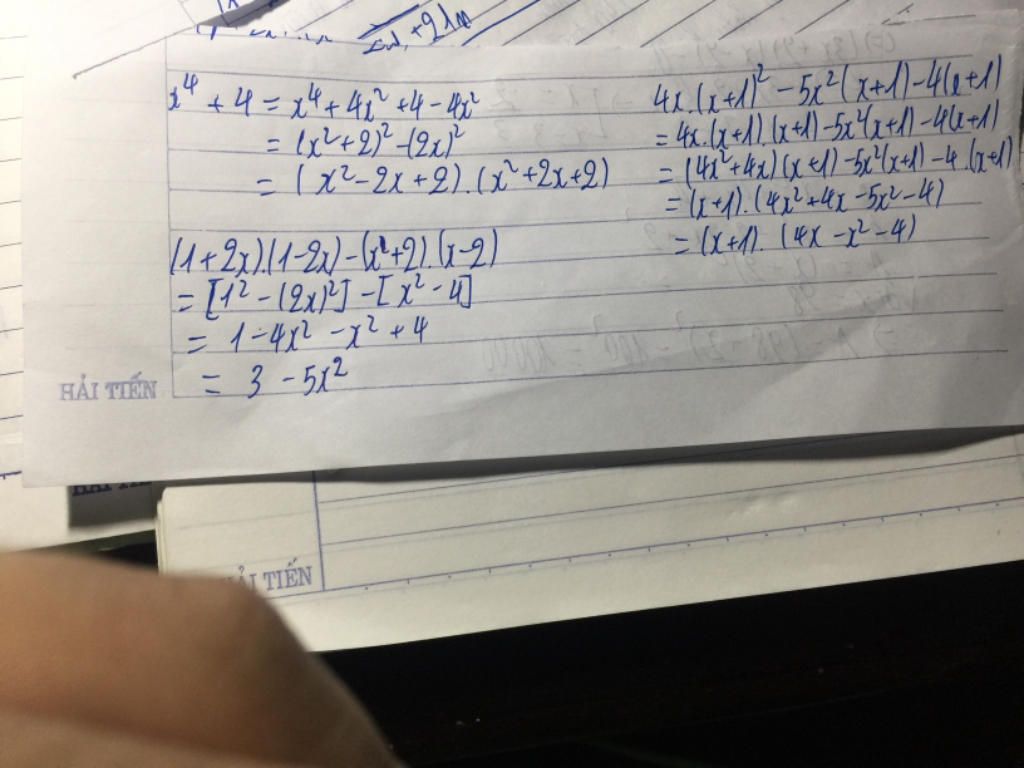 x⁴ + 4 = x⁴ + 4x² + 4 - 4x²
= (x² + 2)² - (2x)²
= (x² - 2x + 2).(x² + 2x + 2)
(1 + 2x).(1 - 2x) - (x + 2).(x - 2)
= [1² - (2x)²] - [x² - 4]
= 1 - 4x² - x² + 4
= 3 - 5x²
4x.(x+1)² - 5x²(x+1) - 4(x+1)
= 4x.(x+1).(x+1) - 5x²(x+1) - 4(x+1)
= (4x² + 4x)(x+1) - 5x²(x+1) - 4.(x+1)
= (x+1).(4x² + 4x - 5x² - 4)
= (x+1).(4x - x² - 4)
HẢI TIẾN
HẢI TIẾN